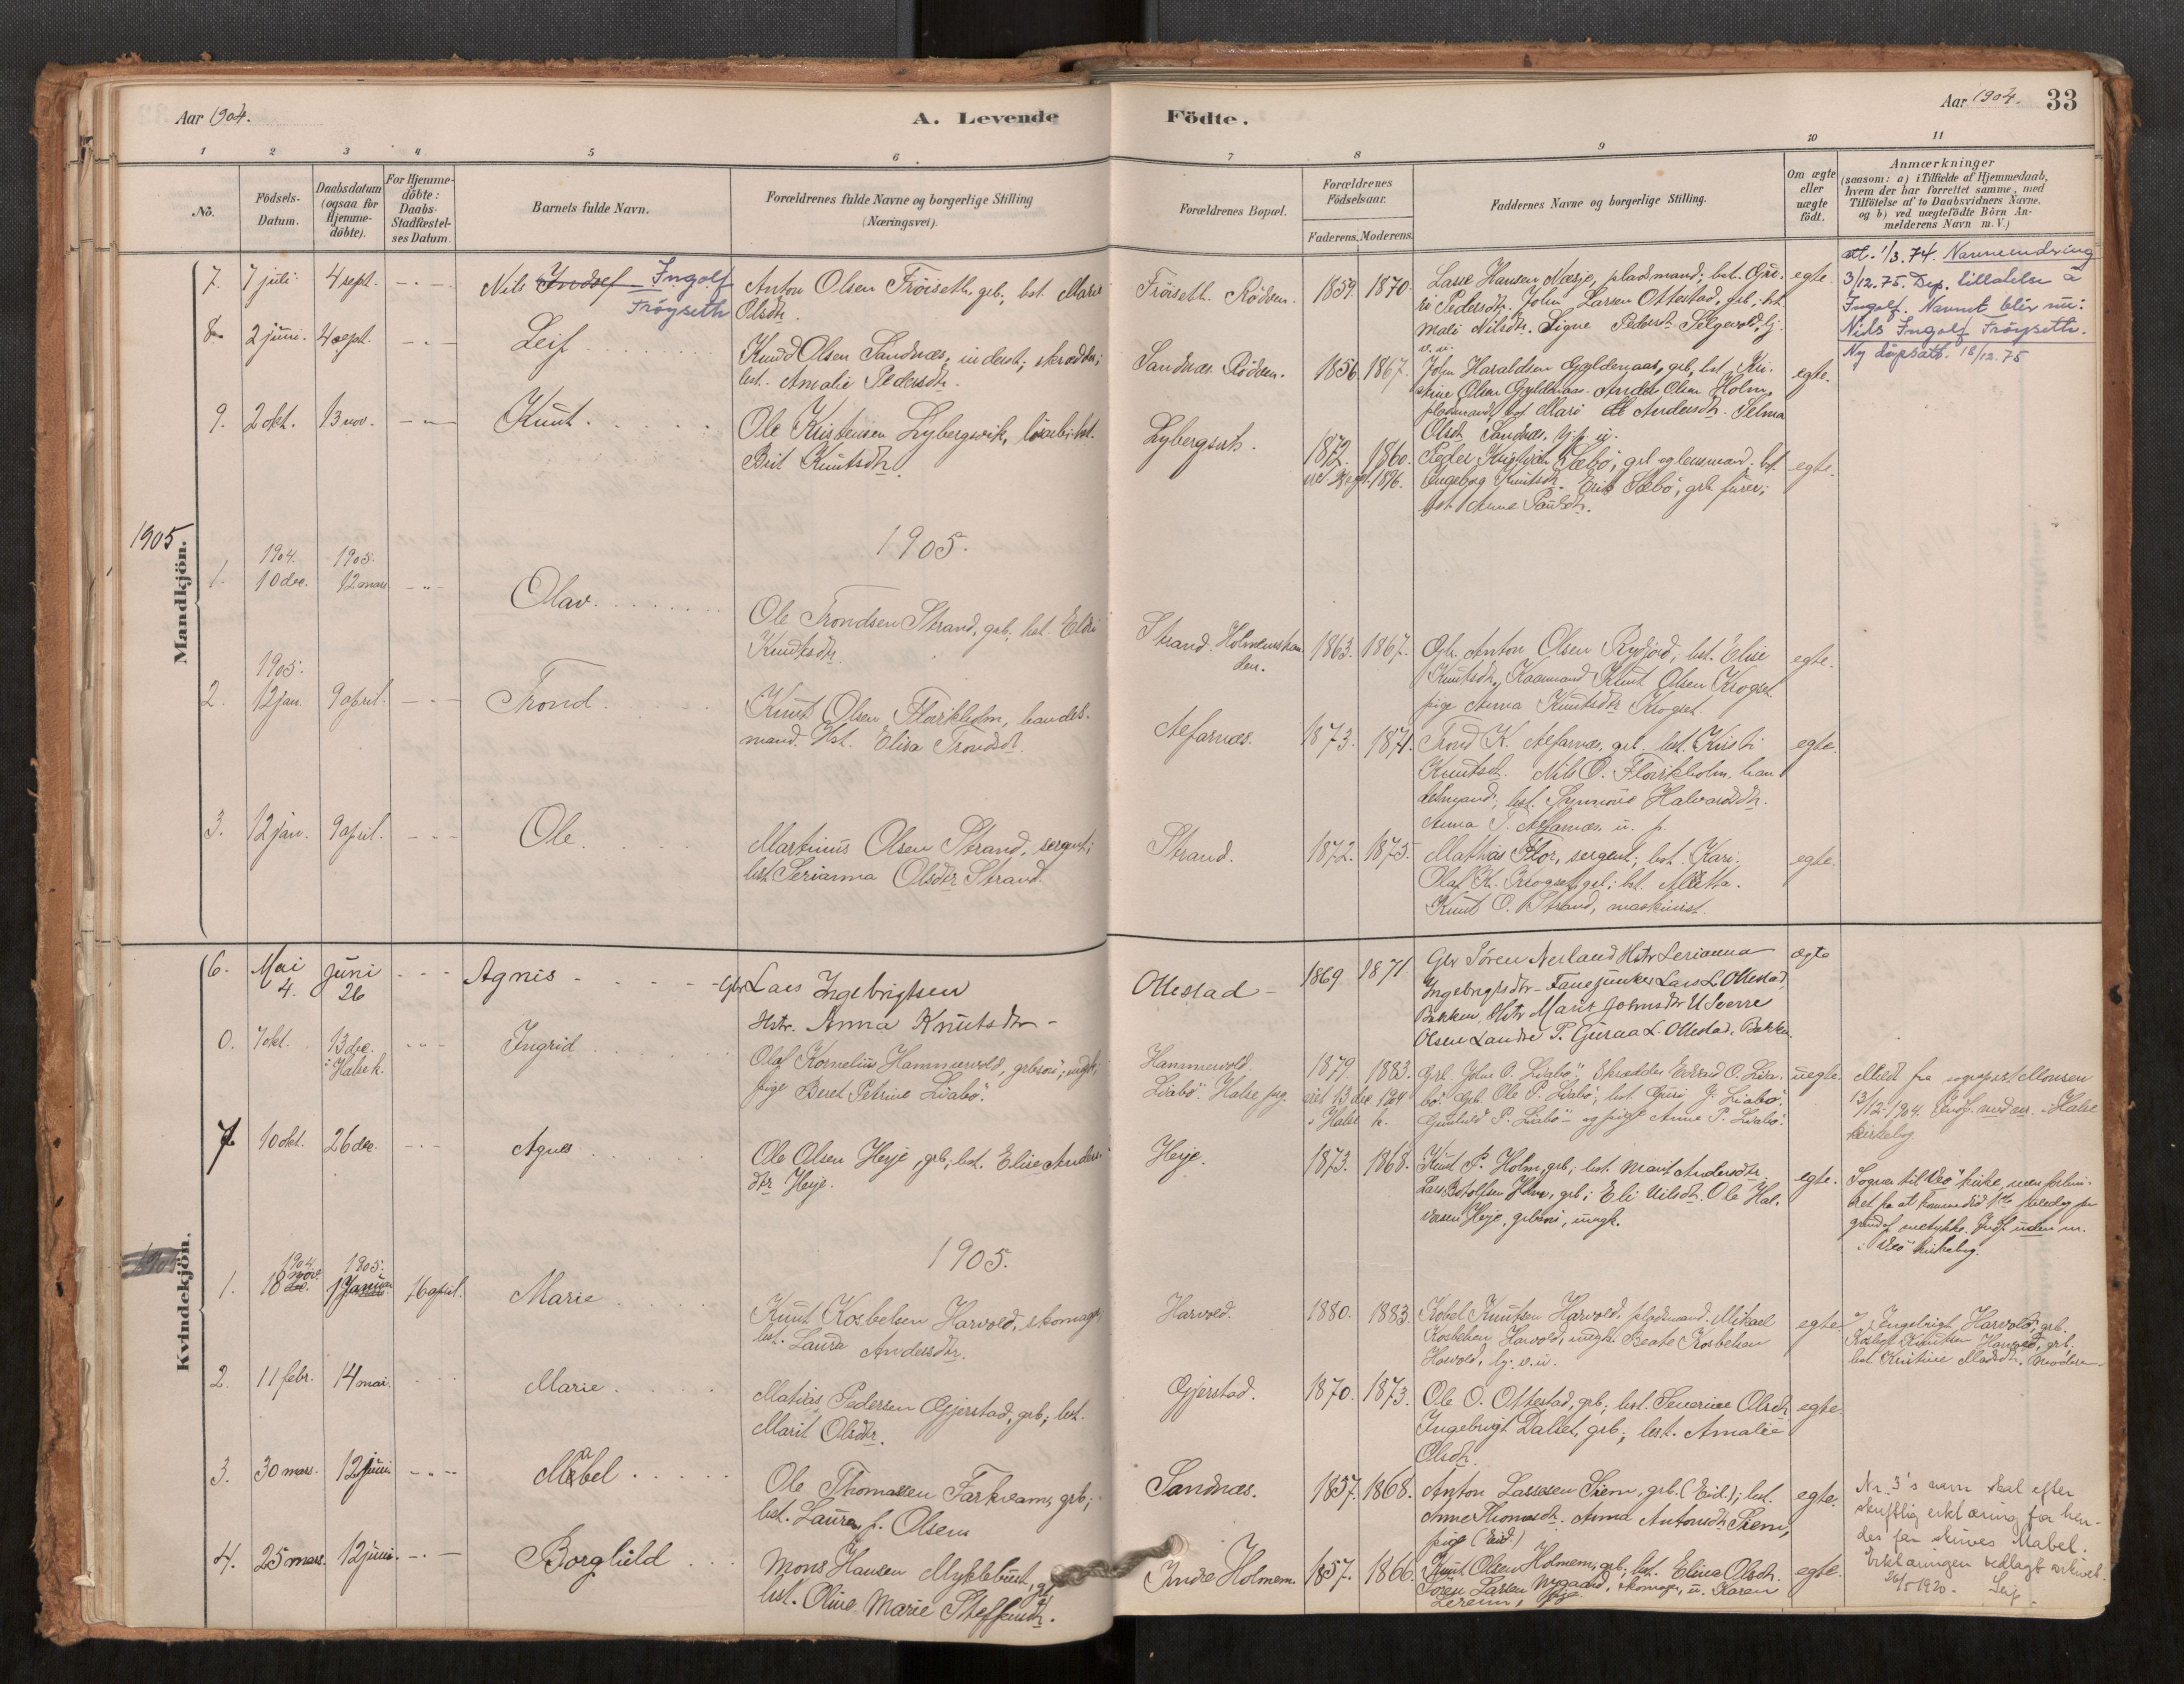 Aar 1904.
A. Levende Födte.
Aar 1904. 33
1 2 3 4 5 6 7 8 9 10 11
No.
Födsels-
Datum.
Daabsdatum
(ogsaa for
Hjemme-
döbte).
For Hjemme-
döbte:
Daabs-
Stadfæstel-
ses Datum.
Barnets fulde Navn.
Forældrenes fulde Navne og borgerlige Stilling
(Næringsvei).
Forældrenes Bopæl.
Forældrenes
Födselsaar.
Faderens. Moderens.
Faddernes Navne og borgerlige Stilling.
Om ægte
eller
uægte
födt.
Anmærkninger
(saasom: a) i Tilfælde af Hjemmedaab,
hvem der har forrettet samme, med
Tilföielse af to Daabsvidners Navne.
og b) ved uægtefödte Börn An-
melderens Navn m. V.)
Mandkjön.
7. 7 juli 4 sept. Nils Indsef Ingolf
Tröyseth
Anton Olsen Tröiseth, grb., hst. Marit
Olsdtr.
Tröiseth. Rödven. 1859. 1870.
Lasse Hansen Næsje, pladsmand; hst. Gu-
ri Pedersdtr. John Larsen Ottestad, grb; hst.
Mali Nilsdtr. Signe Pedersdtr Selgevold, tj.
egte.
att. 1/3.74. Navneendring
3/12.75. Dep. tillatelse å
Ingolf. Navnet blir nu:
Nils Ingolf Tröyseth.
Ny dåpsatt. 18/12.75
8 2 juni. 4 sept. Leif
Knud Olsen Sandnæs, inderst, skrædder;
hst. Amalie Pedersdtr.
Sandnæs. Rödven. 1856. 1867.
John Haraldsen Gyldenaas, grb, hst. Kri-
stine Olsen Gyldenaas. Anders Olsen Holm,
pladsmand, hst Mari Andersdtr. Selma
Olsdtr Sandnæs, tj. p. u.
egte.
9. 2 okt. 13 nov. Knut.
Ole Kristensen Lybergsvik, hst.
Brit Knutsdtr.
Lybergsvik. 1872. 1860.
1896.
Peder Kristian Sæbö, grb og lensmand; hst.
Ingeborg Knutsdtr. Erik Sæbö, grb, furer;
hst Anne Paulsdtr.
egte.
1905
1905.
1904. 1905.
1. 10 dec. 12 mars Olav.
Ole Trondsen Strand, grb, hst. Eldri
Knudtsdtr.
Strand. Holmemstran
den. 1863. 1867.
Grb. Anton Olsen Rydjord, hst. Elise
Knutsdtr, Kaarmand Knut Olsen Krogset
pige Anna Knutsdtr Krogset.
egte.
1905.
2. 12 jan. 9 april. Trond.
Knut Olsen Flovikholm, handels-
mand. Hst. Elisa Trondsdtr.
Afarnæs. 1873. 1871.
Trond K. Aafarnæs, grb. hst. Kirsti
Knutsdtr. Nils O. Flovikholm, han-
delsmand, hst. Synnöve Halvardsdtr.
Anna T. Aafarnæs u. p.
egte.
3. 12 jan. 9 april. Ole.
Martinus Olsen Strand, sergent;
hst Serianna Olsdtr Strand.
Strand. 1872. 1875.
Mathias Flor, sergent; hst. Kari.
Olaf Kn. Krogset, grb; hst. Aletta.
Knut O. Strand, maskinist.
egte.
Kvindekjön.
6. Mai
4. Juni
26 Agnis
Gbr Lars Ingebrigtsen
Hstr. Anna Knutsdtr
Ottestad 1869 1871
Gbr Sören Nerland Hstr Serianna
Ingebrigtsdtr - Fanejunker Lars L. Ottestad
Bakken, Hstr Marit Johnsdtr U Sverre
Olsen Landre P. Guraa L. Ottestad, Bakken
ægte
0. 7 okt. 13 dec.
i Halse k. Ingrid
Olaf Kornelius Hammervold, grbsön, ungk,
pige Beret Petrine Liabö.
Hammervold.
Liabö. Halse prg. 1879. 1883.
viet 13 dec 1904
i Halse k.
Grb. John O. Liabö. Skrædder Erland O. Lia-
bö. Grb. Ole P. Liabö, hst. Guri J. Liabö.
Gunhild P. Liabö og pige Anne P. Liabö.
uegte.
Meldt fra sogneprest Monsen
13/12-1904. Indf. med nr. i Halse
kirkebog
7 10 okt. 26 dec. Agnes
Ole Olsen Heje, grb, hst. Elise Anders-
dtr Heje.
Heje. 1873. 1868.
Knut P. Holm, grb, hst. Marit Andersdtr.
Lars Botolfsen Holm, grb; Eli Nilsdtr. Ole Hal-
vorsen Heje, grbsön, ungk.
egte.
Sogner til Veö kirke, men forhin-
dret fra at komme did paa
grund af metykke. Indf. uden nr.
i Veö kirkebog.
1905.
1904. 1905.
1. 18 nov. 1 Januar 16 april. Marie
Knut Kosbelsen Harvold, skomager,
hst. Laura Andersdtr.
Harvold. 1880. 1883.
Kobel Knutsen Harvold, pladsmand. Mikael
Kosbelsen Harvold, ungk. Beate Kosbelsen
Harvold, tj. v. u.
egte
Ingebrigt Harvold, grb.
Kosbel Knutsen Harvold, grb.
hst. Kristine Madsdtr.
2. 11 febr. 14 mai. Marie
Mathias Pedersen Gjerstad, grb; hst.
Marit Olsdtr.
Gjerstad. 1870. 1873.
Ole O. Ottestad, grb; hst. Severine Olsdtr
Ingebrigt Dalset, grb; hst. Amalie
Olsdtr.
egte.
3. 30 mars. 12 juni Mabel
Ole Thomassen Farkvam, grb;
hst. Laura f. Olsen
Sandnæs. 1857. 1868.
Anton Lassesen Skem, grb. (Eid.); hst.
Anne Thomasdtr. Anna Antonsdtr Skem,
pige (Eid)
egte.
Nr. 3's navn skal efter
skriftlig erklæring fra hen-
des far skrives Mabel.
Erklæringen vedlagt arkivet.
26/5 1920.
4. 25 mars. 12 juni. Borghild
Mons Hansen Myklebust, grb
hst. Oline Marie Steffensdtr.
Indre Holmem. 1857. 1866.
Knut Olsen Holmem, grb; hst. Elina Olsdtr.
Sören Larsen Nygaard, skomager, u. Karen
egte.